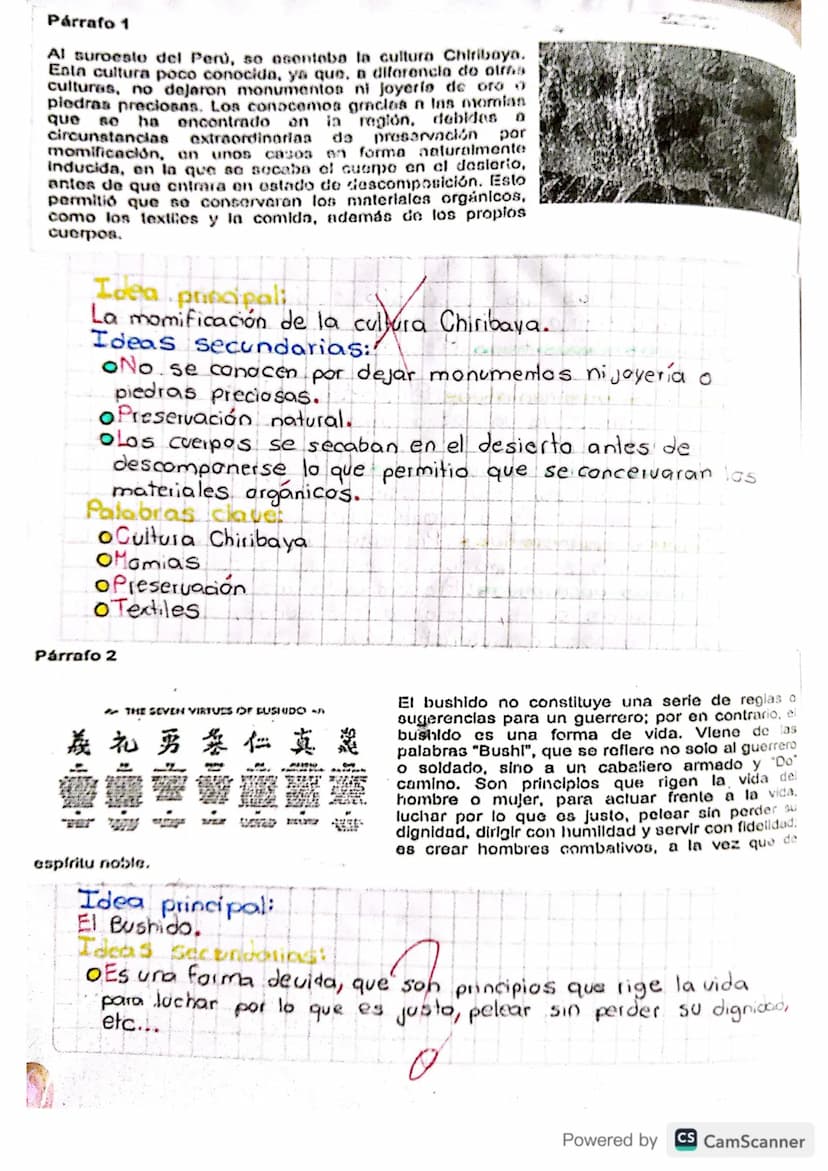 Párrafo 1
Al suroeste del Perú, se asentaba la cultura Chiribaya.
Esta cultura poco conocida, ya que, a diferencia de otras
culturas, no dejaron monumentos ni joyería de oro o
piedras preciosas. Los conocemos gracias a las momias
que se ha encontrado en la región, debidas a
circunstancias extraordinarias de preservación por
momificación, en unos casos en forma naturalmente
inducida, en la que se secaba el cuerpo en el desierto,
antes de que entrara en estado de descomposición. Esto
permitió que se conservaran los materiales orgánicos,
como los textiles y la comida, además de los propios
cuerpos.
Idea principal:
La momificación de la cultura Chiribaya.
Ideas secundarias:
No se conocen por dejar monumentos ni joyería o
piedras preciosas.
Preservación natural.
Los cuerpos se secaban en el desierto antes de
descomponerse lo que permitio que se concervaran los
materiales orgánicos.
Palabras clave:
Cultura Chiribaya
Momias
Preservación
Textiles
Párrafo 2
THE SEVEN VIRTUES OF BUSHIDO
義 礼 勇 仁 真
El bushido no constituye una serie de reglas o
sugerencias para un guerrero; por en contrario, el
bushido es una forma de vida. Viene de las
palabras "Bushi", que se refiere no solo al guerrero
o soldado, sino a un caballero armado y "Do"
camino. Son principios que rigen la vida del
hombre o mujer, para actuar frente a la vida,
luchar por lo que es justo, pelear sin perder su
dignidad, dirigir con humildad y servir con fidelidad.
es crear hombres combativos, a la vez que de
espíritu noble.
Idea principal:
El Bushido.
Ideas secundarias:
Es una forma de vida, que son principios que rige la vida
para luchar por lo que es justo, pelear sin perder su dignidad,
etc...
Powered by CS CamScanner